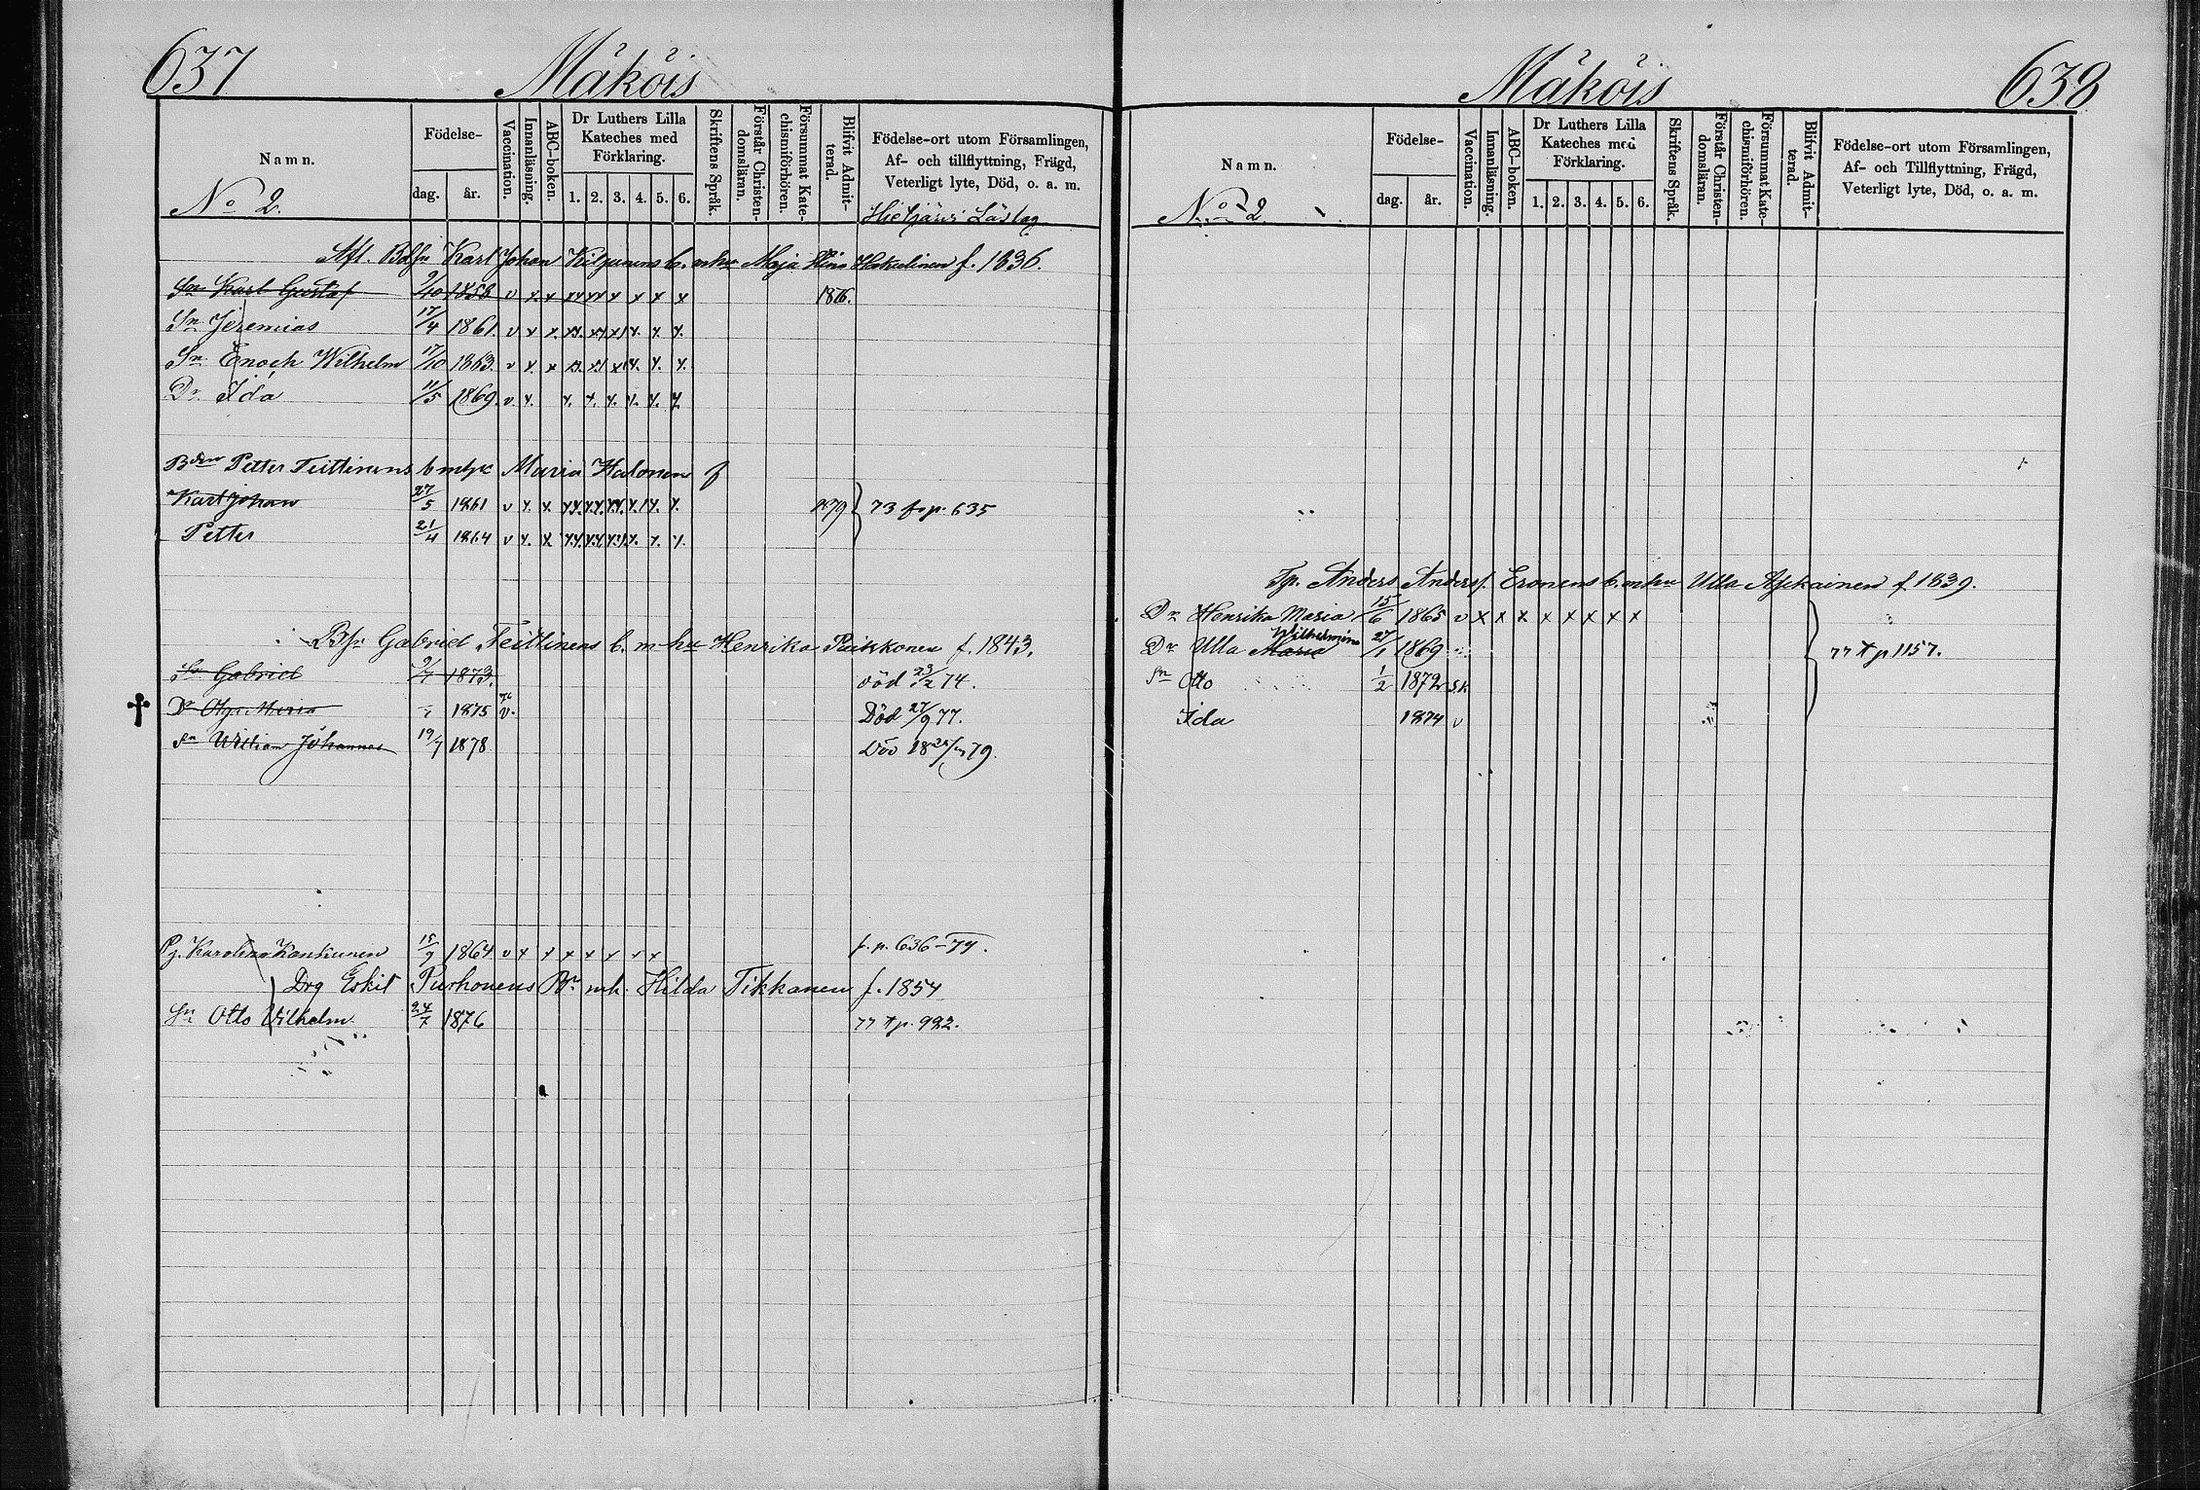 637 Mäköis
Namn.
Födelse-
dag. år.
Vaccination.
Innanläsning.
ABC-boken.
Dr Luthers Lilla Kateches med Förklaring.
1. 2. 3. 4. 5. 6.
Skriftens Språk.
Förstår Christendomsläran.
Försummat Katechismiförhören.
Blifvit Admitterad.
Födelse-ort utom Församlingen,
Af- och tillflyttning, Frägd,
Veterligt lyte, Död, o. a. m.
No 2.
Aft. Karl Johan b. mhu Maja Stina f. 1836.
Sn Karl Gustaf 1858 v x x xx xx x x x x 1876.
Sn Jeremias 17/4 1861. v x x. x. x. x.
Sn Enoch Wilhelm 17/10 1863. v x. x x. x.
Dr. Ida 11/5 1869. v. x. x. x. x. x. x. x
Petter Teittinens Maria Halonen f
Karl Johan 27/5 1861 v x. x. 1879 73 fr p. 635
Petter 21/4 1864 v x. x
Gabriel Teittinens b. m hu Henrika Paikkonen f. 1843.
Sn Gabriel 9/7 1873. död 23/2 74.
Dr Olga Maria 1875 v. Död 27/9 77.
Sn William Johannes 19/7 1878 Död 79.
Pg. Karolina 15/9 1864 v x x x x x x x f. p. 636-74.
Drg Eskil Purhonens mh. Hilda Tikkanen f. 1854
Sn Otto Vilhelm 24/7 1876 77 p. 992.
Mäköis 638
Namn.
Födelse-
dag. år.
Vaccination.
Innanläsning.
ABC-boken.
Dr Luthers Lilla Kateches med Förklaring.
1. 2. 3. 4. 5. 6.
Skriftens Språk.
Förstår Christendomsläran.
Försummat Katechismiförhören.
Blifvit Admitterad.
Födelse-ort utom Församlingen,
Af- och Tillflyttning, Frägd,
Veterligt lyte, Död, o. a. m.
No 2
Tp. Anders Anders. Eronens b. mhu Ulla f. 1839.
Dr Henrika Maria 15/6 1865 v x x x x x x x x
Wilhelmina
Dr Ulla Maria 27/1 1869 77 p 1157.
Sn Otto 1/2 1872 sk
Ida 1874 v